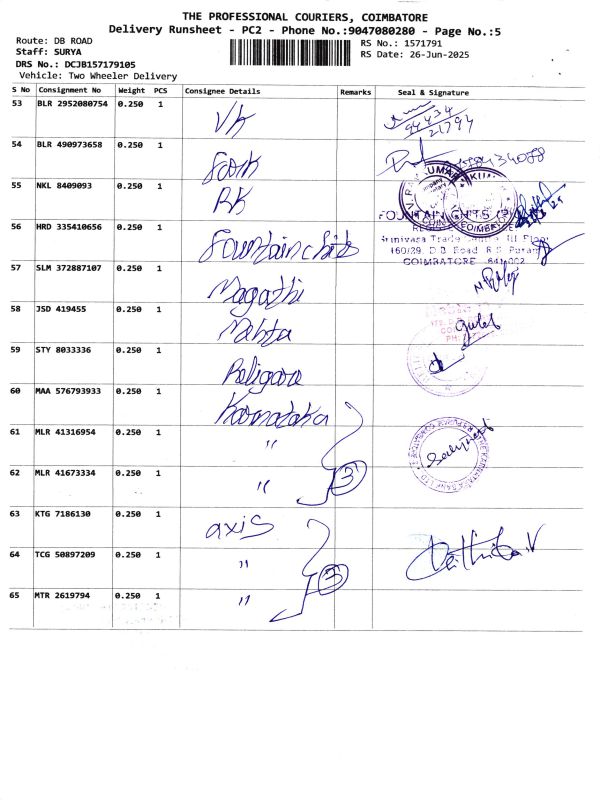 THE PROFESSIONAL COURIERS, COIMBATORE
Delivery Runsheet - PC2 - Phone No.:9047080280 - Page No.:5
Route: DB ROAD
RS No.: 1571791
Staff: SURYA
RS Date: 26-Jun-2025
DRS No.: DCJB157179105
Vehicle: Two Wheeler Delivery
S No Consignment No Weight PCS Consignee Details Remarks Seal & Signature
53 BLR 2952080754 0.250 1 VK
94434
21794
54 BLR 490973658 0.250 1
55 NKL 8409093 0.250 1 RK
FOUNTAIN CHITS (P)
56 HRD 335410656 0.250 1 Fountain chits
Srinivasa Trade Centre III Floor
160/29, D.B. Road R.S. Puram
COIMBATORE 641 002
57 SLM 372887107 0.250 1 Magathi
58 JSD 419455 0.250 1 Mehta
59 STY 8033336 0.250 1 Religare
60 MAA 576793933 0.250 1 Karnataka
61 MLR 41316954 0.250 1 "
62 MLR 41673334 0.250 1 " 3
63 KTG 7186130 0.250 1 axis
64 TCG 50897209 0.250 1 " 3
65 MTR 2619794 0.250 1 "